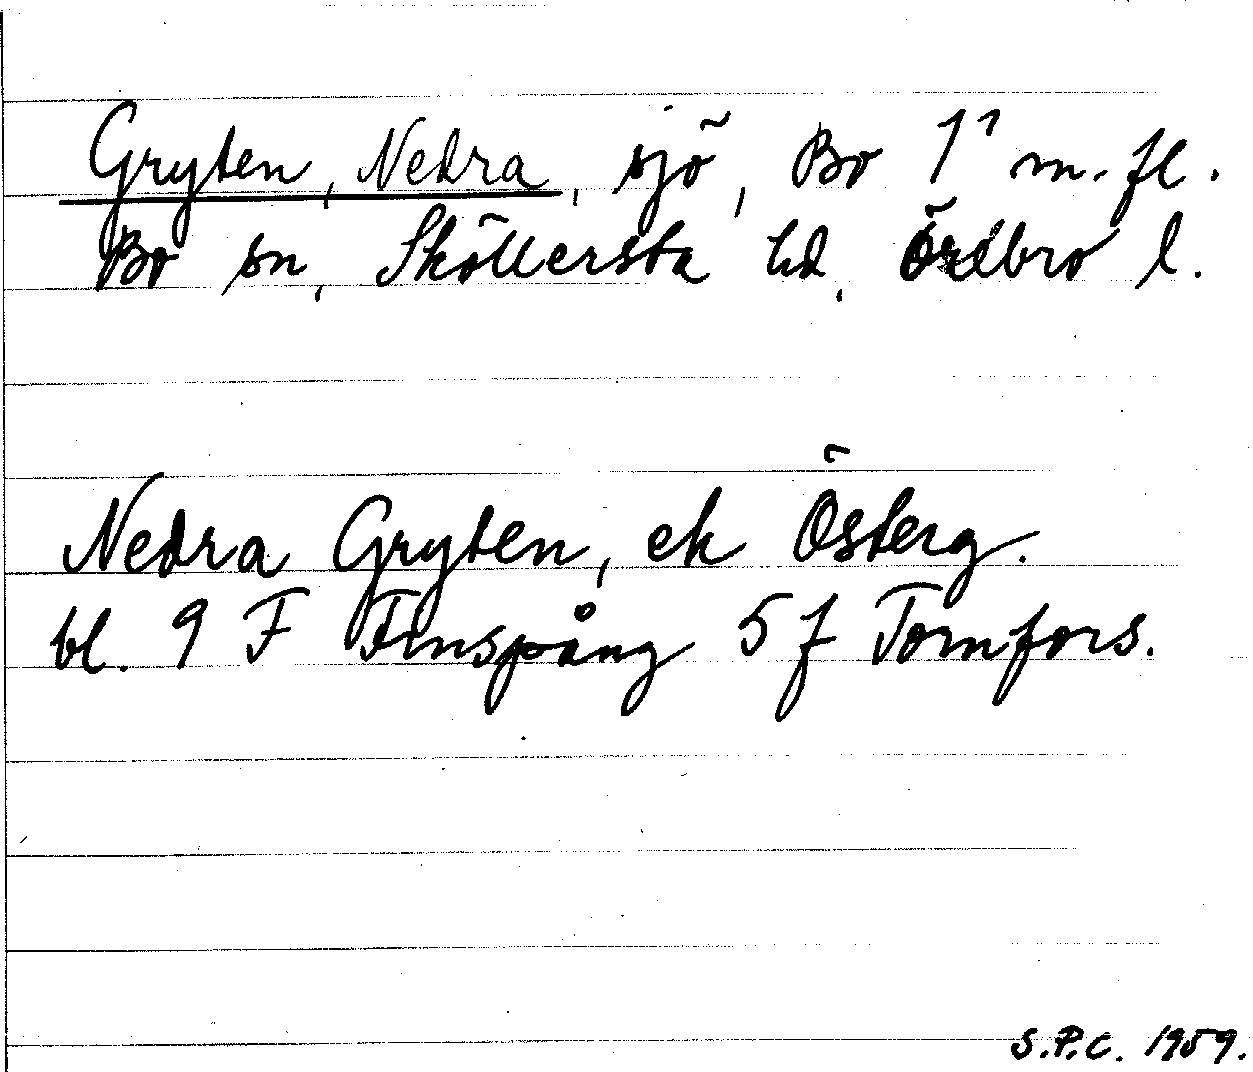 Gryten, Nedra, sjö, Bo 1¹ m. fl.
Bo sn, Sköllersta hd, Örebro l.
Nedra Gryten, ek Österg.
bl. 9 F Finspång 5 f Tornfors.
S.P.C. 1959.